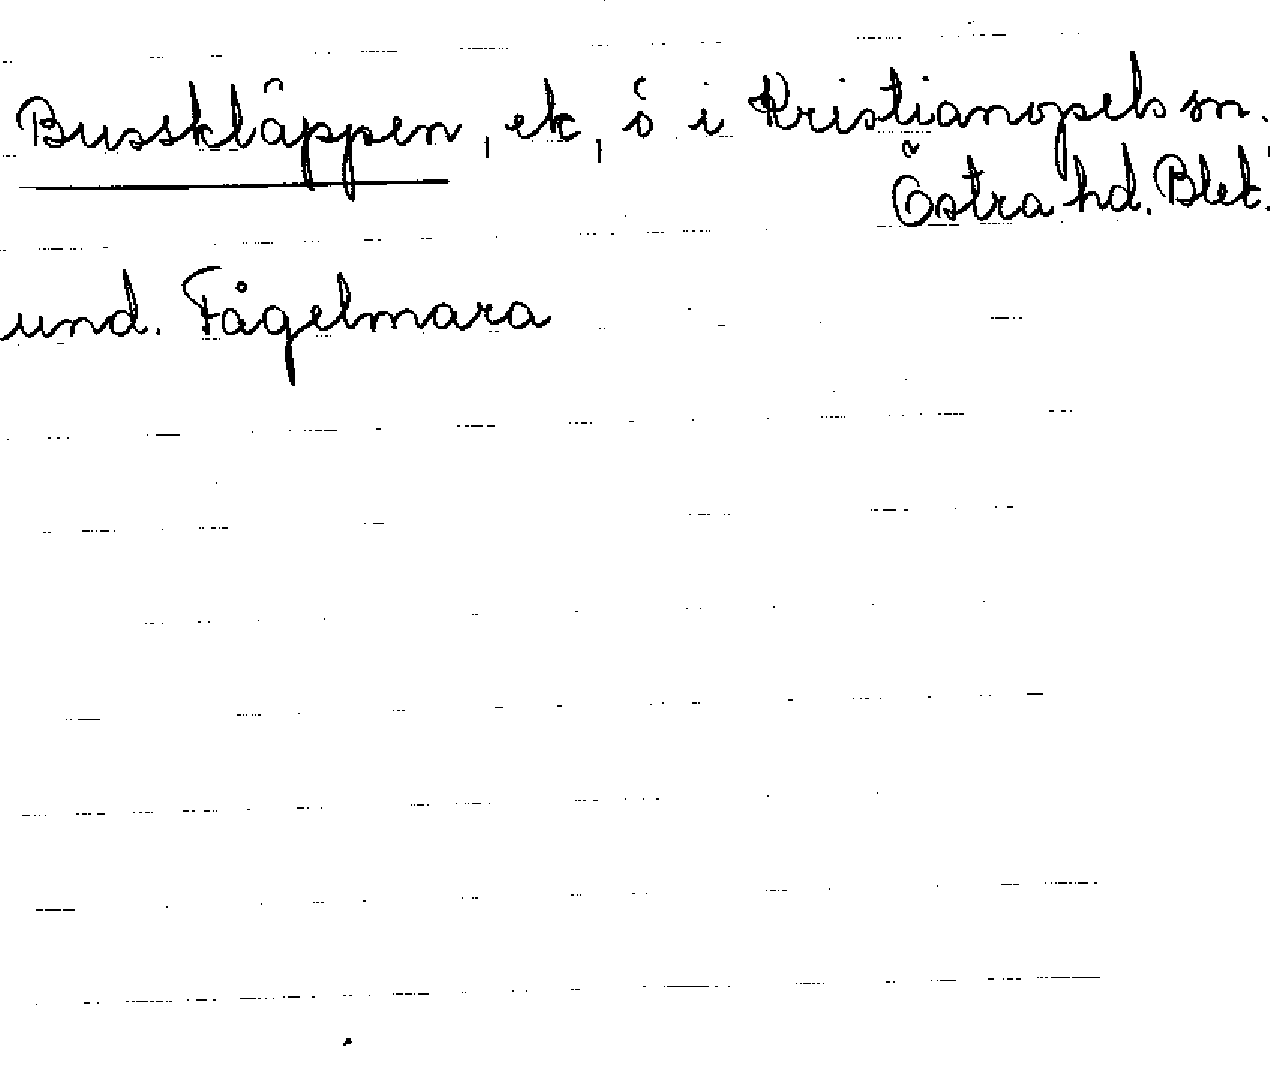 Busskläppen, ek, ö i Kristianopels sn.
Östra hd. Blek.
und. Fågelmara